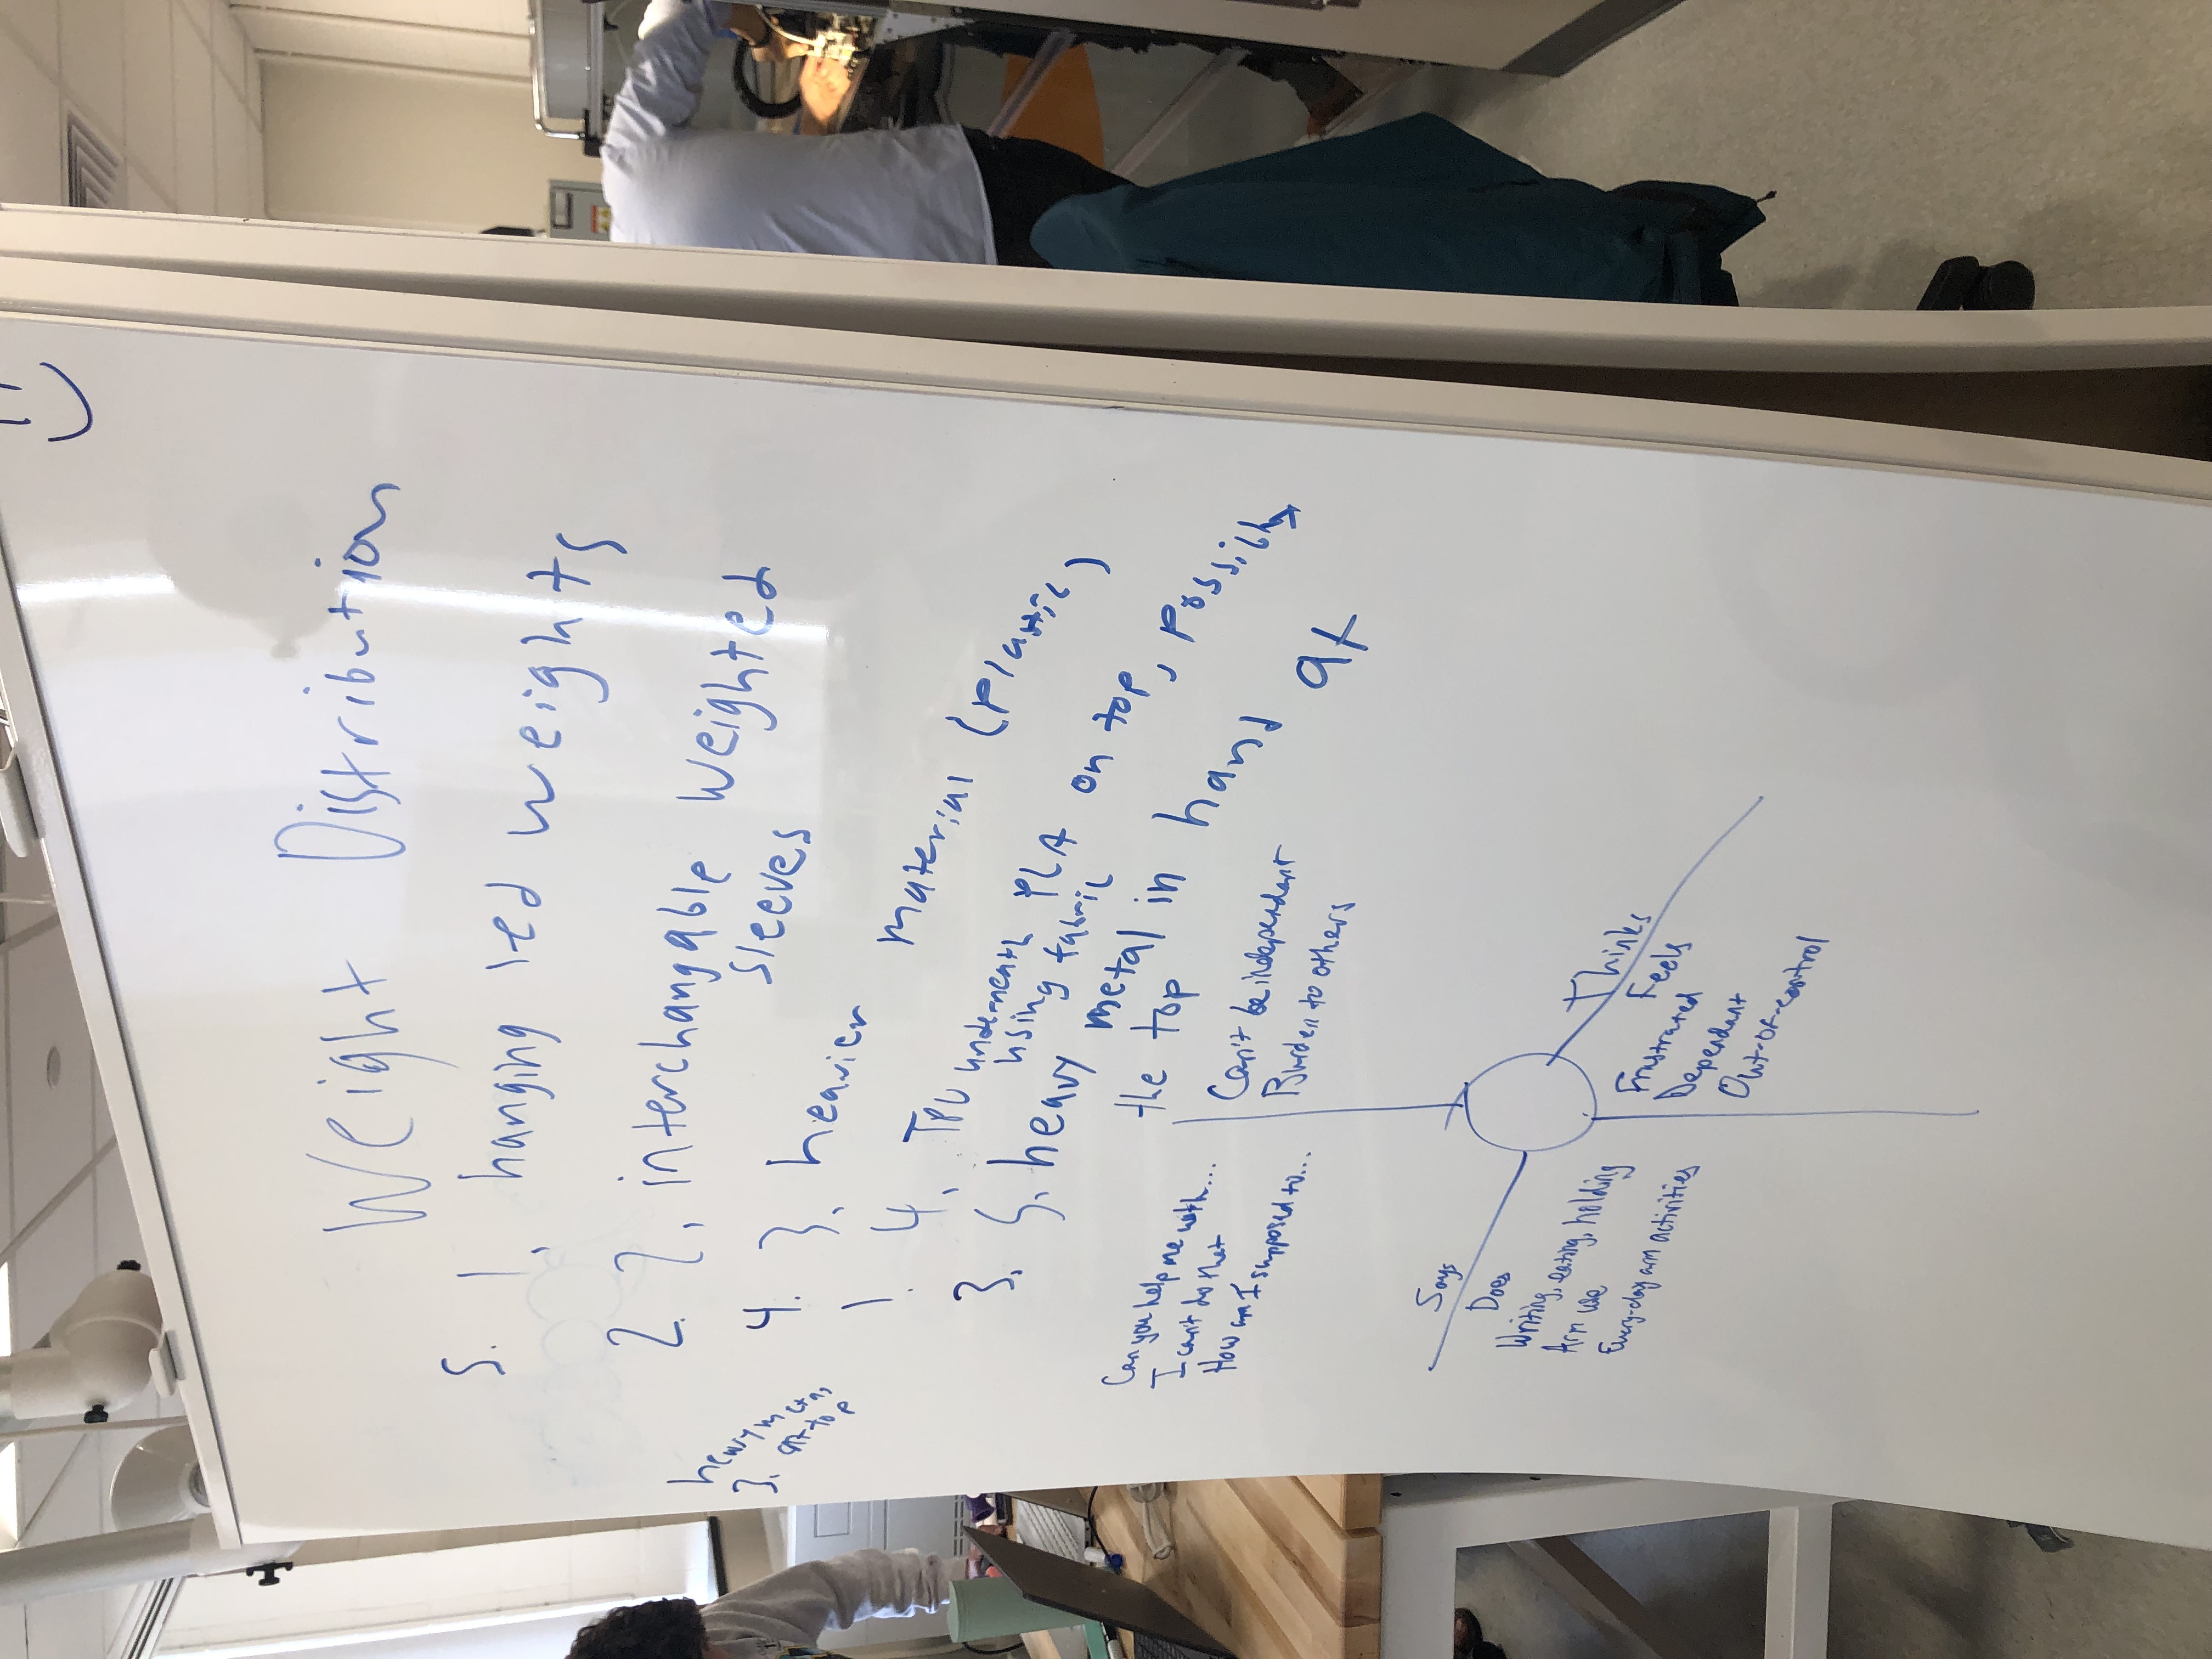 Weight Distribution
5. 1. hanging led weights
2. 2. interchangable weighted
sleeves
4. 3. heavier material (plastic)
1. 4. TPU underneath PLA on top, possibly
using fabric
3. 5. heavy metal in hand at
the top
heavy metal
3. at top
Can you help me with...
I can't do that
How am I supposed to...
Can't be independant
Burden to others
Says
Does
Writing, eating, holding
Arm use
Every-day arm activities
Thinks
Feels
Frustrated
Dependant
Out-of-control